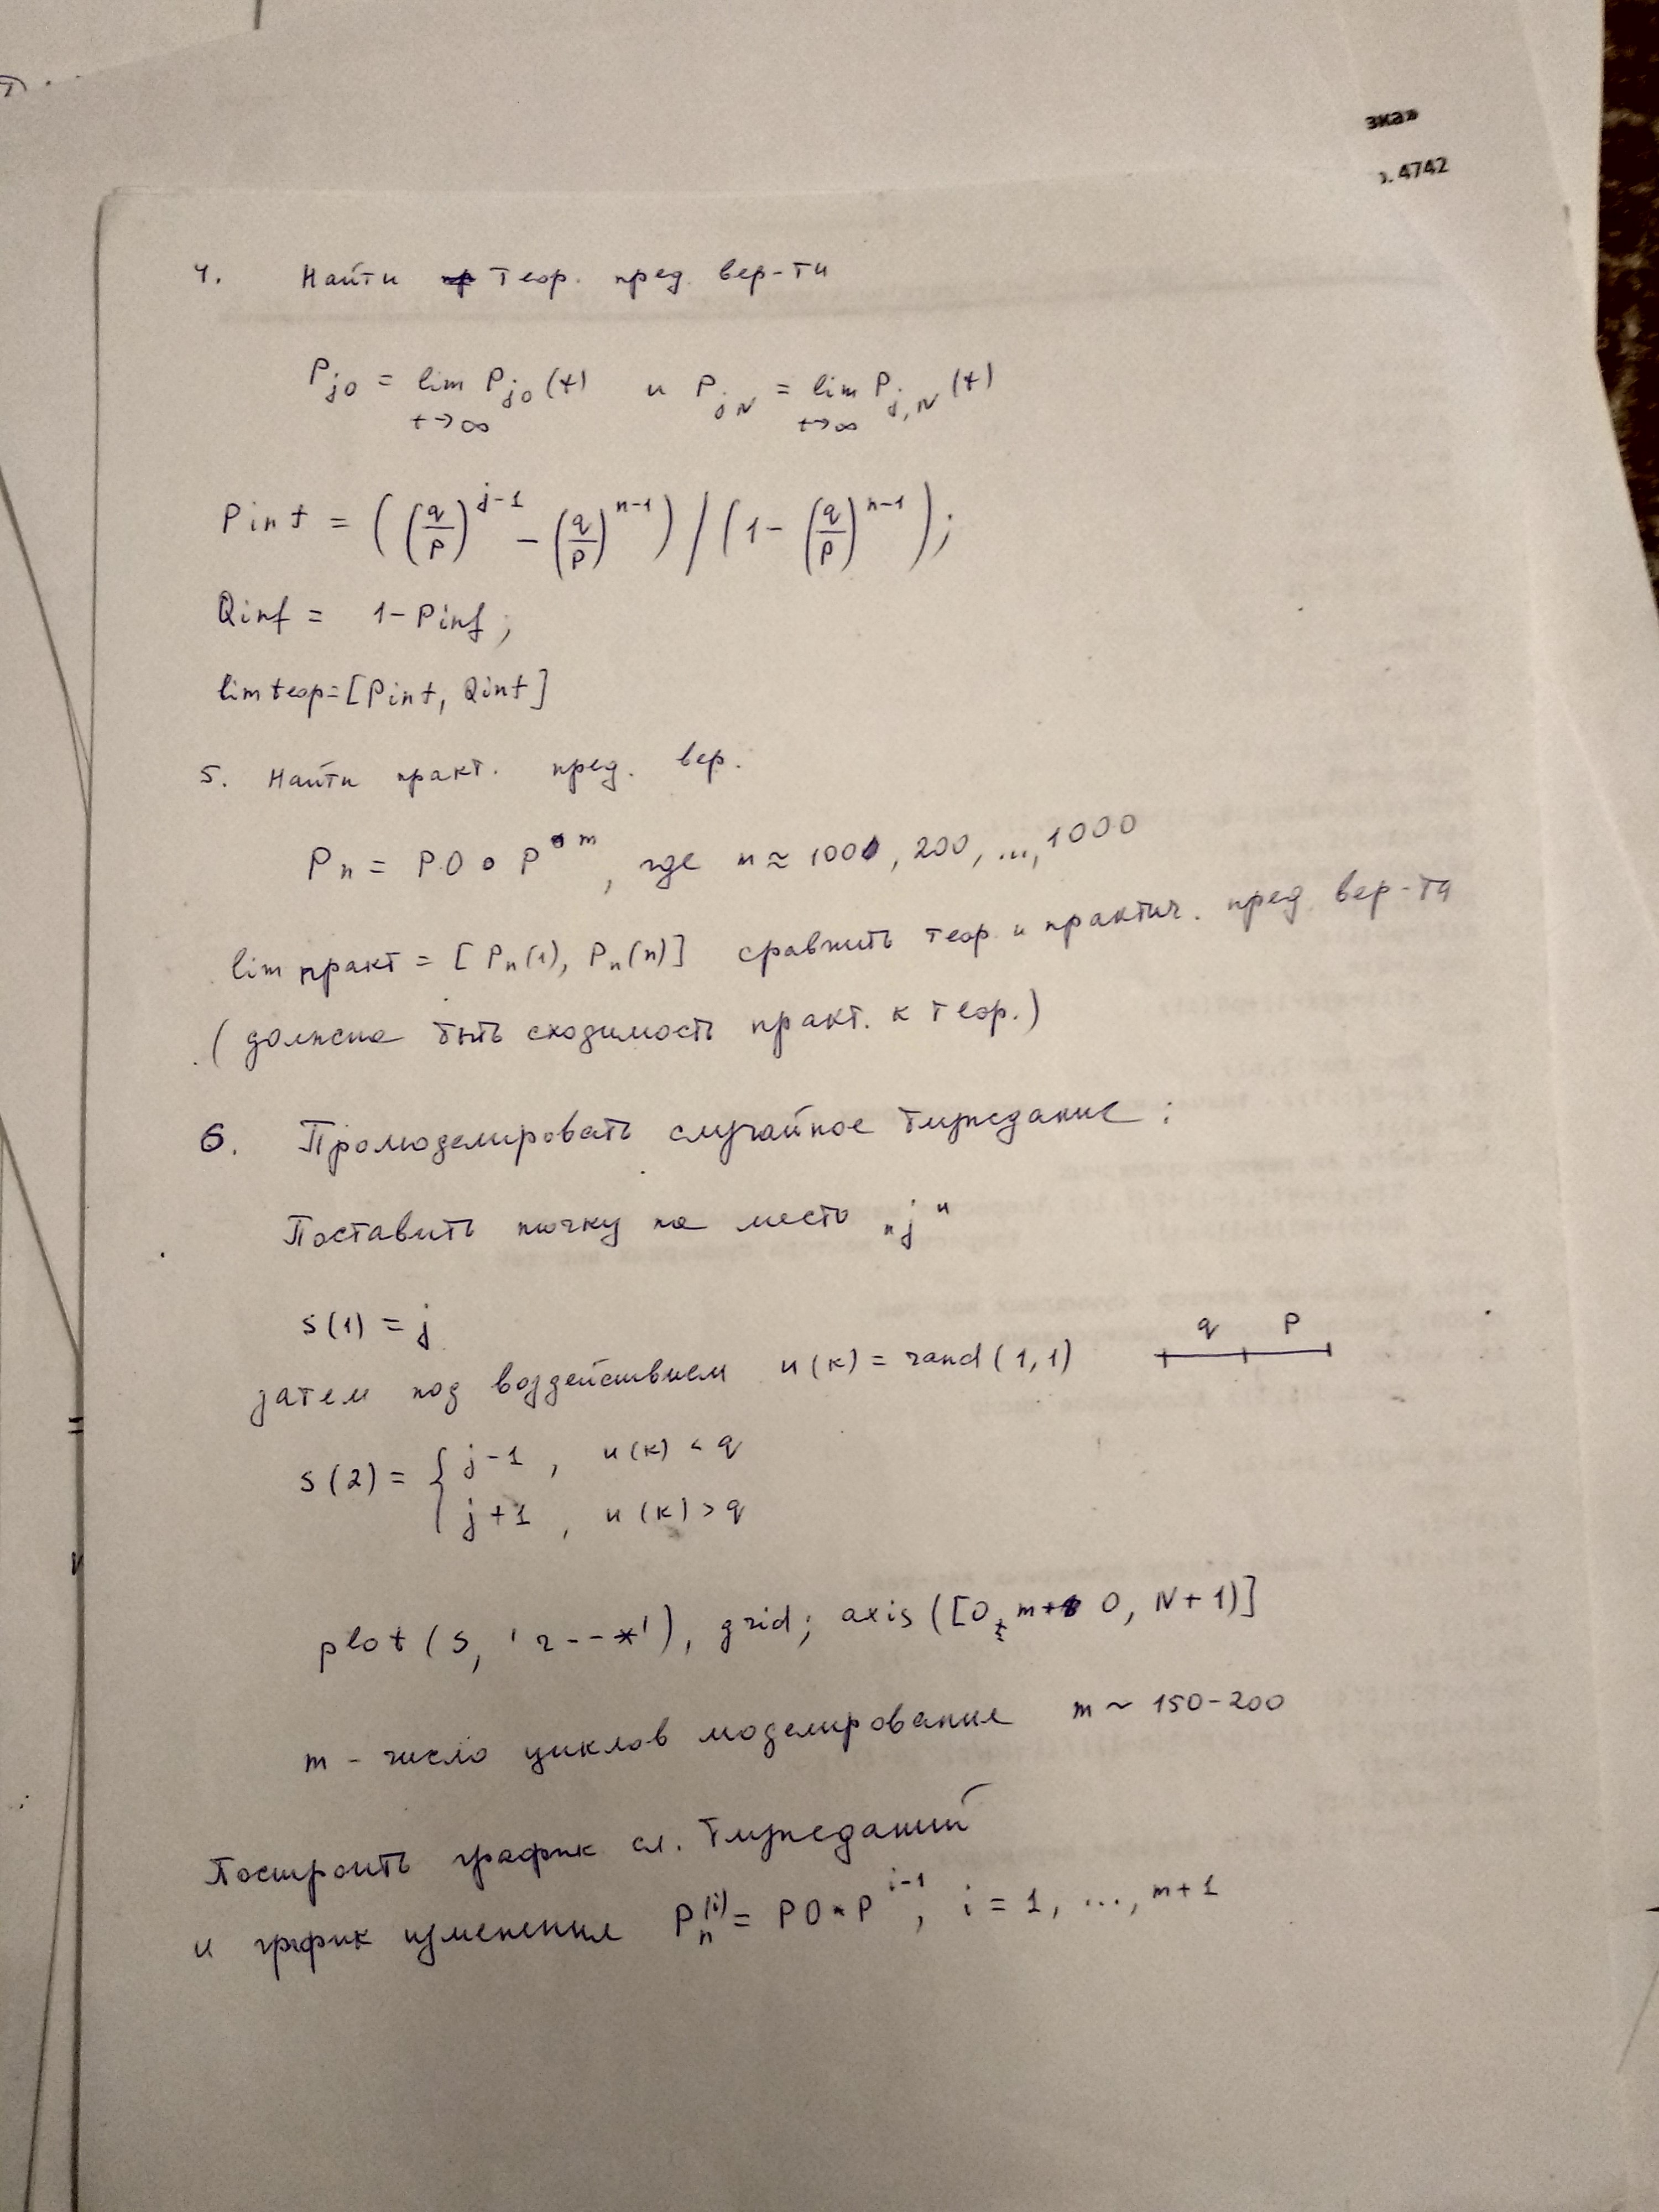 зка»
. 4742
4. Найти теор. пред. вер-ти
P_{j0} = lim_{t→∞} P_{j0}(t) и P_{jN} = lim_{t→∞} P_{j,N}(t)
Pinf = ((q/p)^{j-1} - (q/p)^{n-1}) / (1 - (q/p)^{n-1});
Qinf = 1 - Pinf;
lim теор = [Pinf, Qinf]
5. Найти практ. пред. вер.
P_n = P0 * P^m, где m ≈ 100, 200, ..., 1000
lim практ = [P_n(1), P_n(n)] сравнить теор и практич. пред вер-ти
(должна быть сходимость практ. к теор.)
6. Промоделировать случайное блуждание:
Поставить точку на место „j"
s(1) = j
q p
затем под воздействием u(k) = rand(1,1)
s(2) = { j-1, u(k) < q
j+1, u(k) > q
plot(s, 'r--*'), grid; axis([0, m 0, N+1)]
m - число циклов моделирования m ~ 150-200
Построить график сл. блужданий
и график изменения P_n^{(i)} = P0 * P^{i-1}, i = 1, ..., m+1